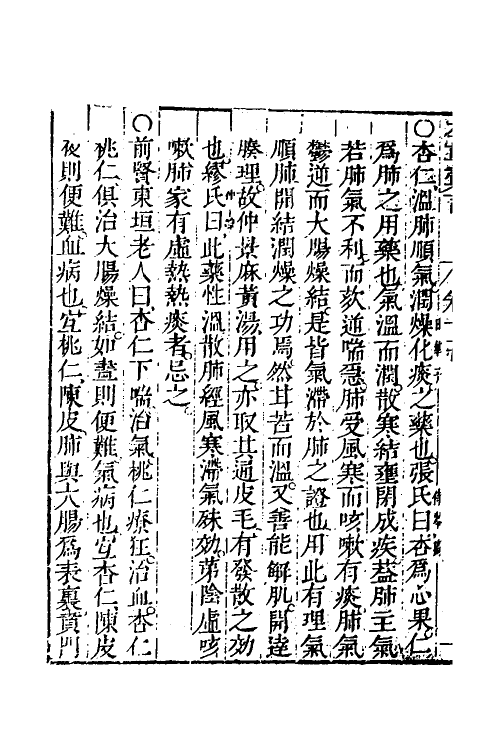 ○杏仁溫肺順氣潤燥化痰之藥也張氏曰杏爲心果仁
爲肺之用藥也氣溫而潤散寒結壅閉成疾葢肺主氣
若肺氣不利而欬逆喘急肺受風寒而咳嗽有痰肺氣
鬱逆而大腸燥結是皆氣滯於肺之證也用此有理氣
順肺開結潤燥之功焉然其苦而溫又善能解肌開達
腠理故仲景麻黃湯用之亦取其通皮毛有發散之効
也繆氏曰此藥性溫散肺經風寒滯氣殊効第陰虛咳
嗽肺家有虛熱熱痰者忌之
○前賢東垣老人曰杏仁下喘治氣桃仁療狂治血杏仁
桃仁俱治大腸燥結如晝則便難氣病也宜杏仁陳皮
夜則便難血病也宜桃仁陳皮肺與大腸爲表裏賁門